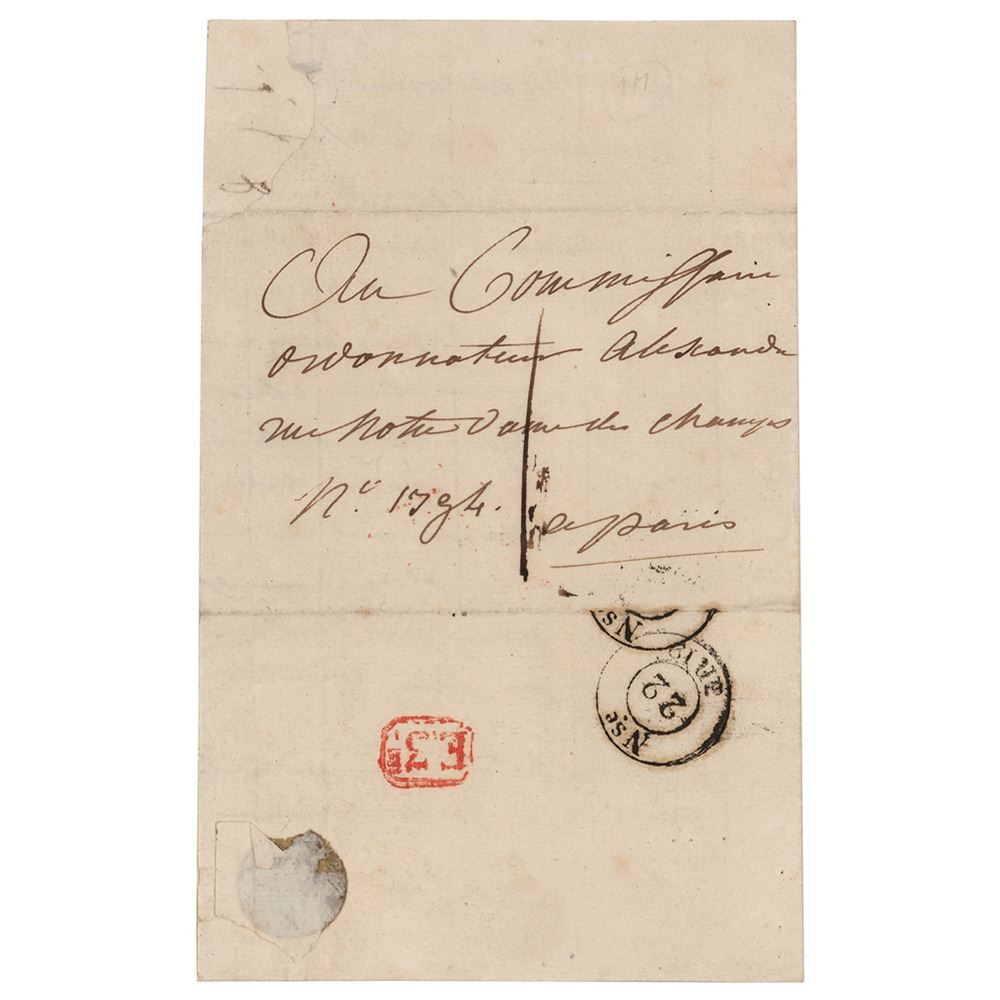 Au Commissaire
ordonnateur Alexandre
rue Notre Dame des champs
N° 1794.
a paris
Nse
22
Nse
E.3